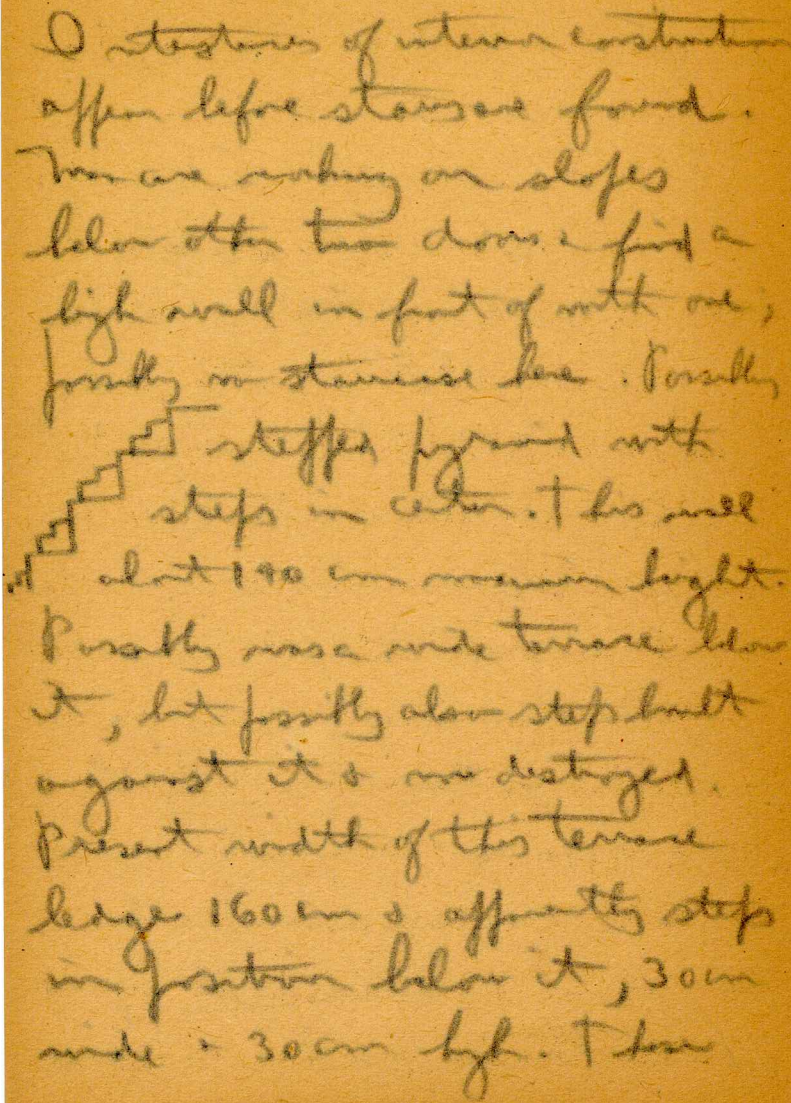 of interior construction
appear before stairs are found.
Men are working on slopes
below other two doors & find a
high wall in front of north one,
possibly no staircase here. Possibly
stepped pyramid with
steps in center. This wall
about 190 cm maximum height.
Possibly was a wide terrace below
it, but possibly also steps built
against it & now destroyed.
Present width of this terrace
ledge 160 cm & apparently steps
in position below it, 30 cm
wide & 30 cm high. These